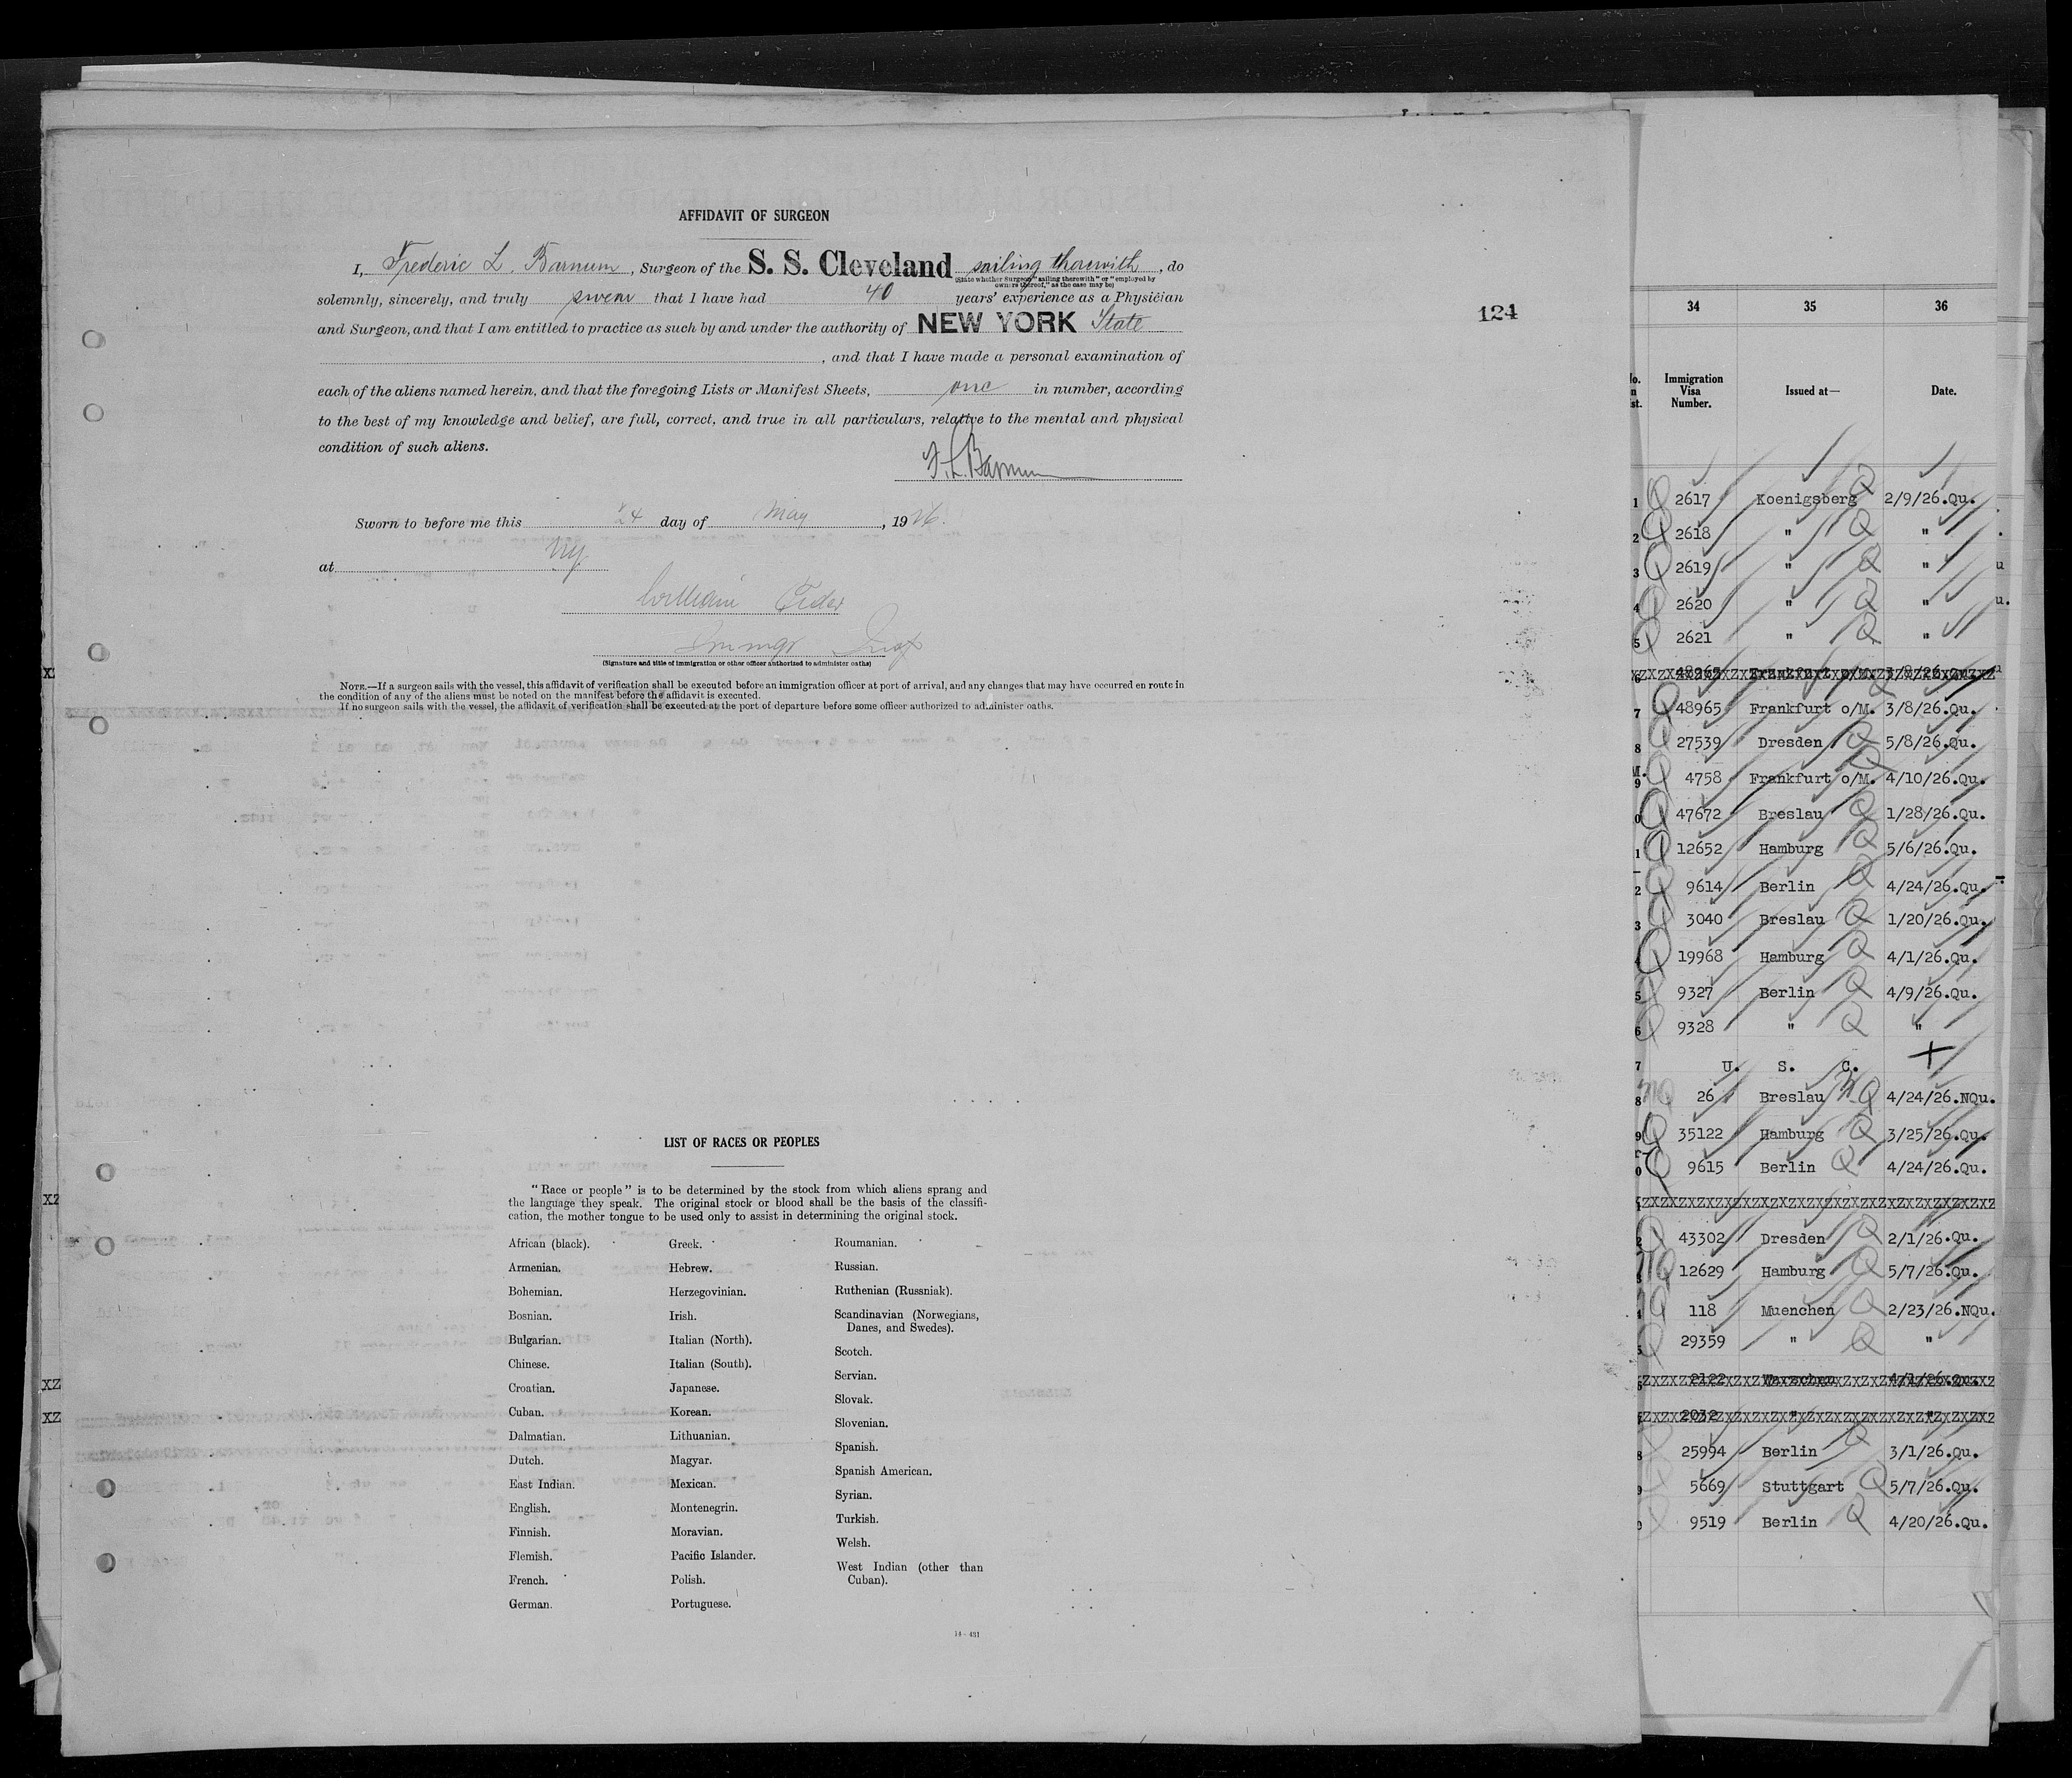 AFFIDAVIT OF SURGEON
I, Frederic L. Barnum, Surgeon of the S. S. Cleveland sailing therewith, do
(State whether Surgeon "sailing therewith" or "employed by
owners thereof," as the case may be)
solemnly, sincerely, and truly swear that I have had 40 years' experience as a Physician
and Surgeon, and that I am entitled to practice as such by and under the authority of NEW YORK State
, and that I have made a personal examination of
each of the aliens named herein, and that the foregoing Lists or Manifest Sheets, one in number, according
to the best of my knowledge and belief, are full, correct, and true in all particulars, relative to the mental and physical
condition of such aliens.
F. L. Barnum
Sworn to before me this 24 day of May, 1926.
at NY.
William
(Signature and title of immigration or other officer authorized to administer oaths)
NOTE.—If a surgeon sails with the vessel, this affidavit of verification shall be executed before an immigration officer at port of arrival, and any changes that may have occurred en route in
the condition of any of the aliens must be noted on the manifest before the affidavit is executed.
If no surgeon sails with the vessel, the affidavit of verification shall be executed at the port of departure before some officer authorized to administer oaths.
124
LIST OF RACES OR PEOPLES
"Race or people" is to be determined by the stock from which aliens sprang and
the language they speak. The original stock or blood shall be the basis of the classifi-
cation, the mother tongue to be used only to assist in determining the original stock.
African (black).
Armenian.
Bohemian.
Bosnian.
Bulgarian.
Chinese.
Croatian.
Cuban.
Dalmatian.
Dutch.
East Indian.
English.
Finnish.
Flemish.
French.
German.
Greek.
Hebrew.
Herzegovinian.
Irish.
Italian (North).
Italian (South).
Japanese.
Korean.
Lithuanian.
Magyar.
Mexican.
Montenegrin.
Moravian.
Pacific Islander.
Polish.
Portuguese.
Roumanian.
Russian.
Ruthenian (Russniak).
Scandinavian (Norwegians,
Danes, and Swedes).
Scotch.
Servian.
Slovak.
Slovenian.
Spanish.
Spanish American.
Syrian.
Turkish.
Welsh.
West Indian (other than
Cuban).
14—431
34 35 36
Immigration Visa Number. Issued at— Date.
1 Q 2617 Koenigsberg Q 2/9/26.Qu.
2 Q 2618 " Q "
3 Q 2619 " Q "
4 Q 2620 " Q "
5 Q 2621 " Q "
48965 Frankfurt o/M. 3/8/26.Qu.
7 Q 48965 Frankfurt o/M. Q 3/8/26.Qu.
8 Q 27539 Dresden Q 5/8/26.Qu.
9 Q 4758 Frankfurt o/M. Q 4/10/26.Qu.
0 Q 47672 Breslau Q 1/28/26.Qu.
1 Q 12652 Hamburg Q 5/6/26.Qu.
2 Q 9614 Berlin Q 4/24/26.Qu.
3 Q 3040 Breslau Q 1/20/26.Qu.
Q 19968 Hamburg Q 4/1/26.Qu.
5 Q 9327 Berlin Q 4/9/26.Qu.
6 Q 9328 " Q "
7 U. S. C.
8 NQ 26 Breslau NQ 4/24/26.NQu.
9 Q 35122 Hamburg Q 3/25/26.Qu.
0 Q 9615 Berlin Q 4/24/26.Qu.
2 Q 43302 Dresden Q 2/1/26.Qu.
12629 Hamburg Q 5/7/26.Qu.
118 Muenchen Q 2/23/26.NQu.
5 Q 29359 " Q "
2122 Warschau 4/1/26.Qu.
2032 " "
8 25994 Berlin Q 3/1/26.Qu.
9 5669 Stuttgart Q 5/7/26.Qu.
0 9519 Berlin Q 4/20/26.Qu.